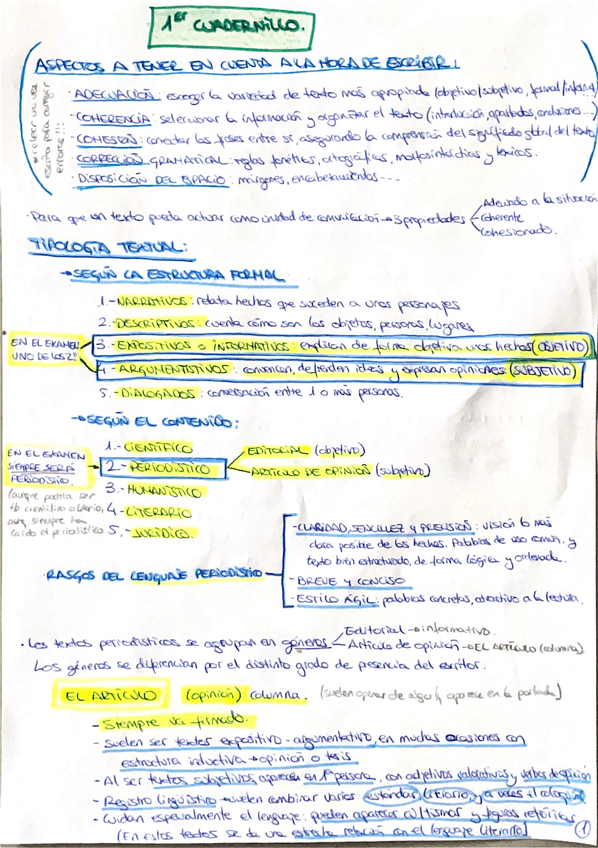 1er CUADERNILLO.
ASPECTOS A TENER EN CUENTA A LA HORA DE ESCRIBIR:
*releer un vez escrito para corregir errores!!!
· ADECUACIÓN: escoger la variedad de texto más apropiada (objetivo/subjetivo, formal/informal)
· COHERENCIA: seleccionar la información y organizar el texto (introducción, apartados, conclusiones...)
· COHESIÓN: conectar las frases entre sí, asegurando la comprensión del significado global del texto
· CORRECCIÓN GRAMATICAL: reglas fonéticas, ortográficas, morfosintácticas y léxicas.
· DISPOSICIÓN DEL ESPACIO: márgenes, encabezamientos...
· Para que un texto pueda actuar como unidad de comunicación → 3 propiedades
Adecuado a la situación
Coherente
Cohesionado.
TIPOLOGÍA TEXTUAL:
→ SEGÚN LA ESTRUCTURA FORMAL
1.- NARRATIVOS: relata hechos que suceden a unos personajes
2.- DESCRIPTIVOS: cuenta cómo son los objetos, personas, lugares
EN EL EXAMEN UNO DE LOS 2!!
3.- EXPOSITIVOS o INFORMATIVOS: explican de forma objetiva unos hechos (OBJETIVO)
4.- ARGUMENTATIVOS: convencen, defienden ideas y expresan opiniones (SUBJETIVO)
5.- DIALOGADOS: conversación entre 1 o más personas.
→ SEGÚN EL CONTENIDO:
1.- CIENTÍFICO
EN EL EXAMEN
SIEMPRE SERÁ
PERIODÍSTICO.
(aunque podría ser
tb científico o literario,
aunq. siempre ha
caído el periodístico
2.- PERIODÍSTICO
EDITORIAL (objetivo)
ARTÍCULO DE OPINIÓN (subjetivo)
3.- HUMANÍSTICO
4.- LITERARIO
5.- JURÍDICO.
· RASGOS DEL LENGUAJE PERIODÍSTICO
- CLARIDAD, SENCILLEZ Y PRECISIÓN: visión lo más
clara posible de los hechos. Palabras de uso común, y
texto bien estructurado, de forma lógica y ordenada.
- BREVE Y CONCISO
- ESTILO ÁGIL: palabras concretas, atractivo a la lectura.
· Los textos periodísticos se agrupan en géneros
Editorial → informativo.
Artículo de opinión → EL ARTÍCULO (columna)
Los géneros se diferencian por el distinto grado de presencia del escritor.
EL ARTÍCULO (opinión) columna. (suelen opinar de algo q aparece en la portada)
- Siempre va firmado.
- Suelen ser textos expositivo - argumentativo, en muchas ocasiones con
estructura inductiva → opinión o tesis
- Al ser textos subjetivos aparecen en 1ª persona, con adjetivos valorativos y verbos de opinión
- Registro lingüístico → suelen combinar varios estándar, literario, y a veces el coloquial
- Cuidan especialmente el lenguaje: pueden aparecer cultismos y figuras retóricas
(En estos textos se da una estrecha relación con el lenguaje literario)
1